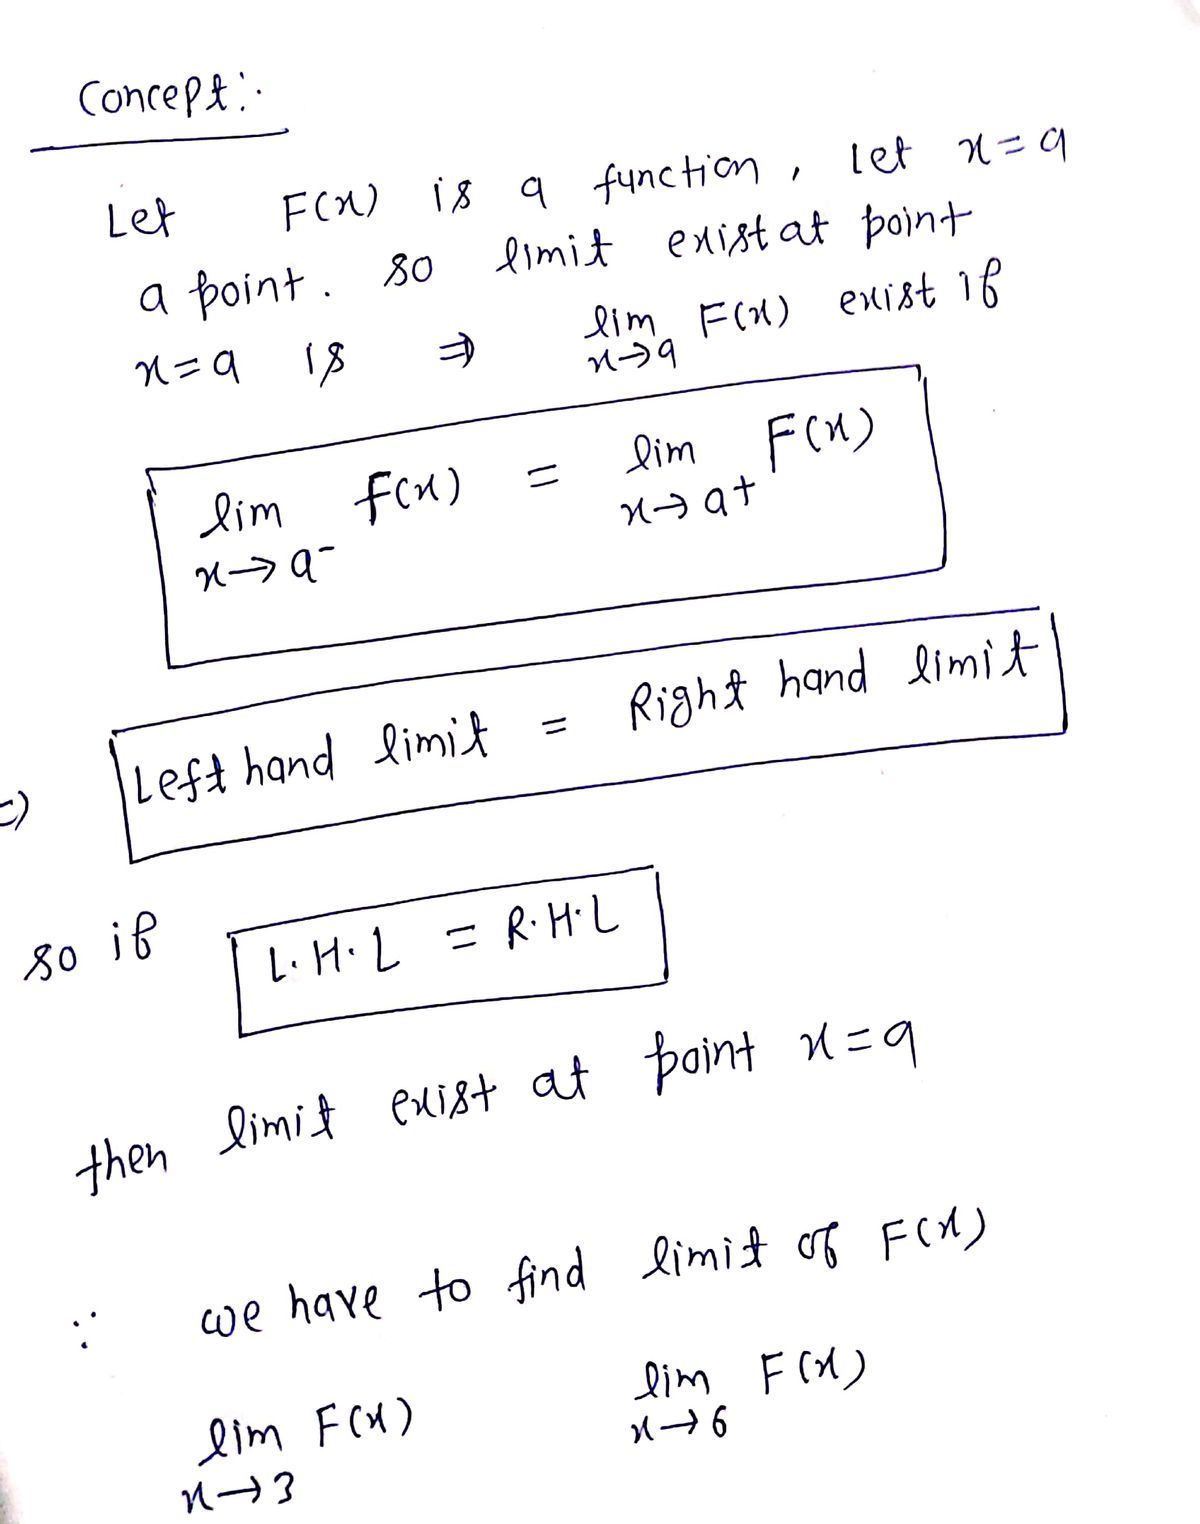 Concept:-
Let F(x) is a function, let x=a
a point. so limit exist at point
x=a is ⇒ lim F(x) exist if
x→a
lim f(x) = lim F(x)
x→a- x→a+
Left hand limit = Right hand limit
so if L.H.L = R.H.L
then limit exist at point x=a
∵ we have to find limit of F(x)
lim F(x) lim F(x)
x→3 x→6